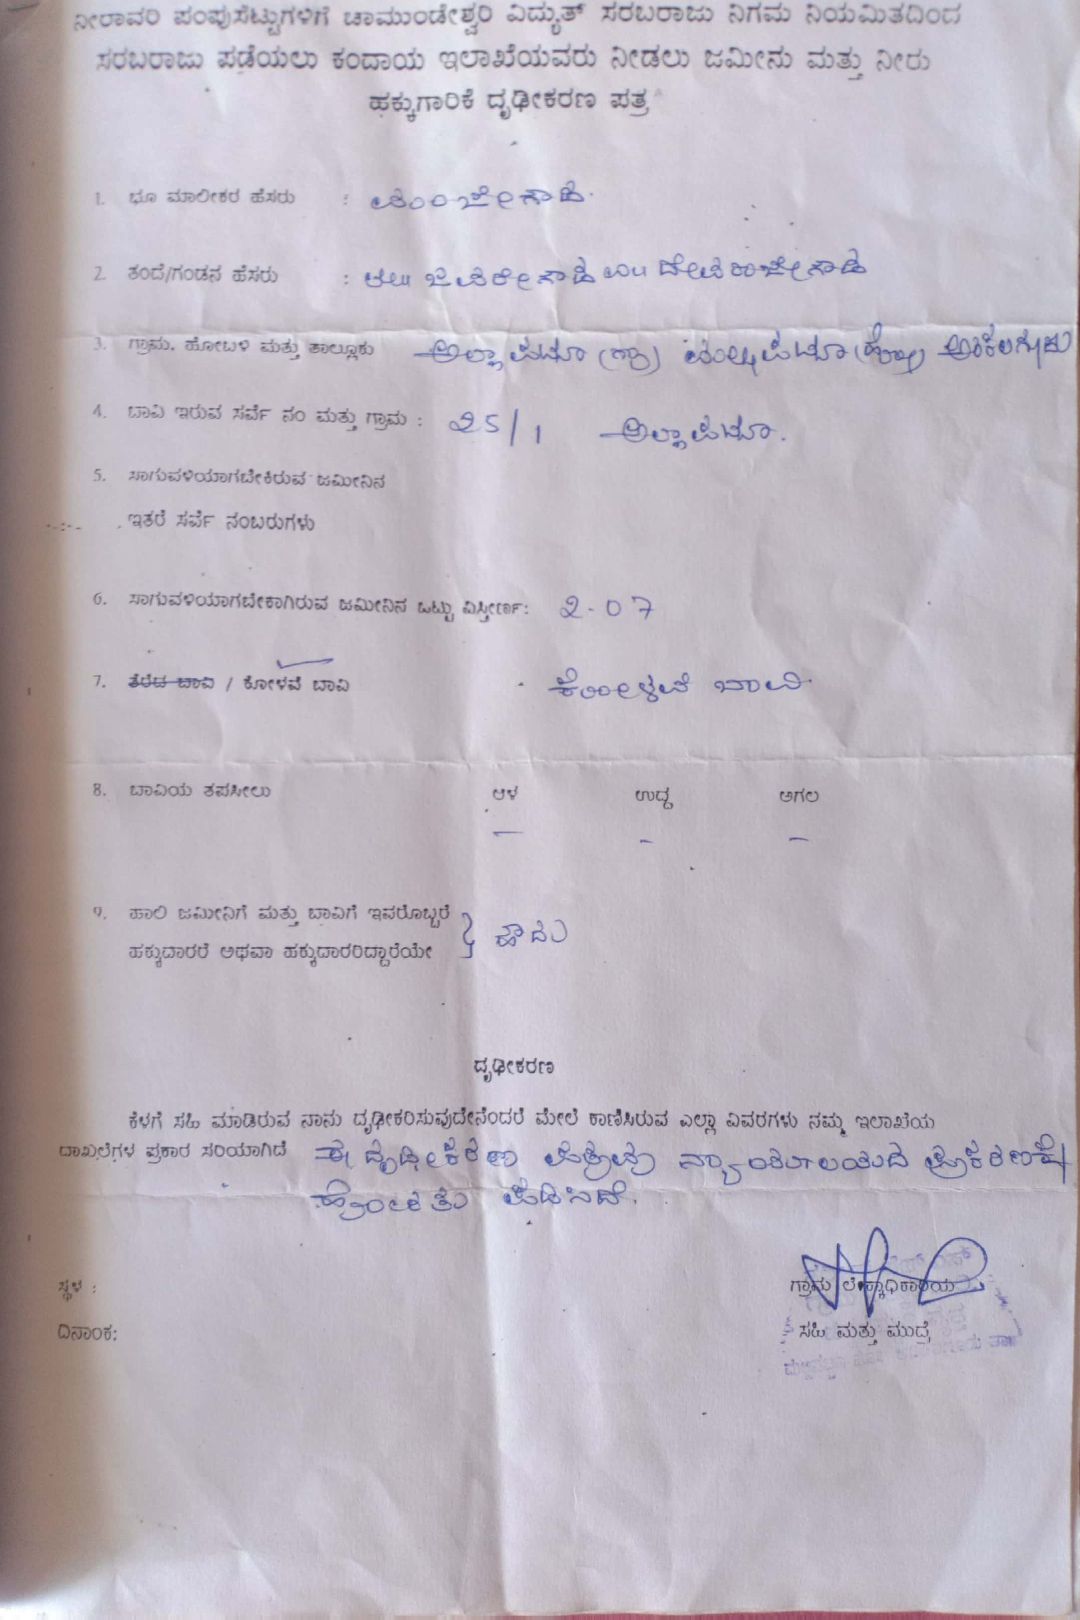 ನೀರಾವರಿ ಪಂಪುಸೆಟ್ಟುಗಳಿಗೆ ಚಾಮುಂಡೇಶ್ವರಿ ವಿದ್ಯುತ್ ಸರಬರಾಜು ನಿಗಮ ನಿಯಮಿತದಿಂದ
ಸರಬರಾಜು ಪಡೆಯಲು ಕಂದಾಯ ಇಲಾಖೆಯವರು ನೀಡಲು ಜಮೀನು ಮತ್ತು ನೀರು
ಹಕ್ಕುಗಾರಿಕೆ ದೃಢೀಕರಣ ಪತ್ರ
1. ಭೂ ಮಾಲೀಕರ ಹೆಸರು :
2. ತಂದೆ/ಗಂಡನ ಹೆಸರು :
3. ಗ್ರಾಮ, ಹೋಬಳಿ ಮತ್ತು ತಾಲ್ಲೂಕು (ಗ್ರಾ) (ಹೋ) ಅರಕಲಗೂಡು
4. ಬಾವಿ ಇರುವ ಸರ್ವೆ ನಂ ಮತ್ತು ಗ್ರಾಮ : 25/1
5. ಸಾಗುವಳಿಯಾಗಬೇಕಿರುವ ಜಮೀನಿನ
ಇತರೆ ಸರ್ವೆ ನಂಬರುಗಳು
6. ಸಾಗುವಳಿಯಾಗಬೇಕಾಗಿರುವ ಜಮೀನಿನ ಒಟ್ಟು ವಿಸ್ತೀರ್ಣ: 2-07
7. ತೆರೆದ ಬಾವಿ / ಕೋಳವೆ ಬಾವಿ ಕೊಳವೆ ಬಾವಿ
8. ಬಾವಿಯ ತಪಸೀಲು ಆಳ ಉದ್ದ ಅಗಲ
– – –
9. ಹಾಲಿ ಜಮೀನಿಗೆ ಮತ್ತು ಬಾವಿಗೆ ಇವರೊಬ್ಬರೆ
ಹಕ್ಕುದಾರರೆ ಅಥವಾ ಹಕ್ಕುದಾರರಿದ್ದಾರೆಯೇ } ಹೌದು
ದೃಢೀಕರಣ
ಕೆಳಗೆ ಸಹಿ ಮಾಡಿರುವ ನಾನು ದೃಢೀಕರಿಸುವುದೇನೆಂದರೆ ಮೇಲೆ ಕಾಣಿಸಿರುವ ಎಲ್ಲಾ ವಿವರಗಳು ನಮ್ಮ ಇಲಾಖೆಯ
ದಾಖಲೆಗಳ ಪ್ರಕಾರ ಸರಿಯಾಗಿದೆ ಈ ದೃಢೀಕರಣ ಪತ್ರವು ನ್ಯಾಯಾಲಯದ ಪ್ರಕರಣಕ್ಕೆ
ಹೊರತು ಪಡಿಸಿದೆ.
ಸ್ಥಳ :
ಗ್ರಾಮ ಲೆಕ್ಕಾಧಿಕಾರಿಯ
ದಿನಾಂಕ:
ಸಹಿ ಮತ್ತು ಮುದ್ರೆ